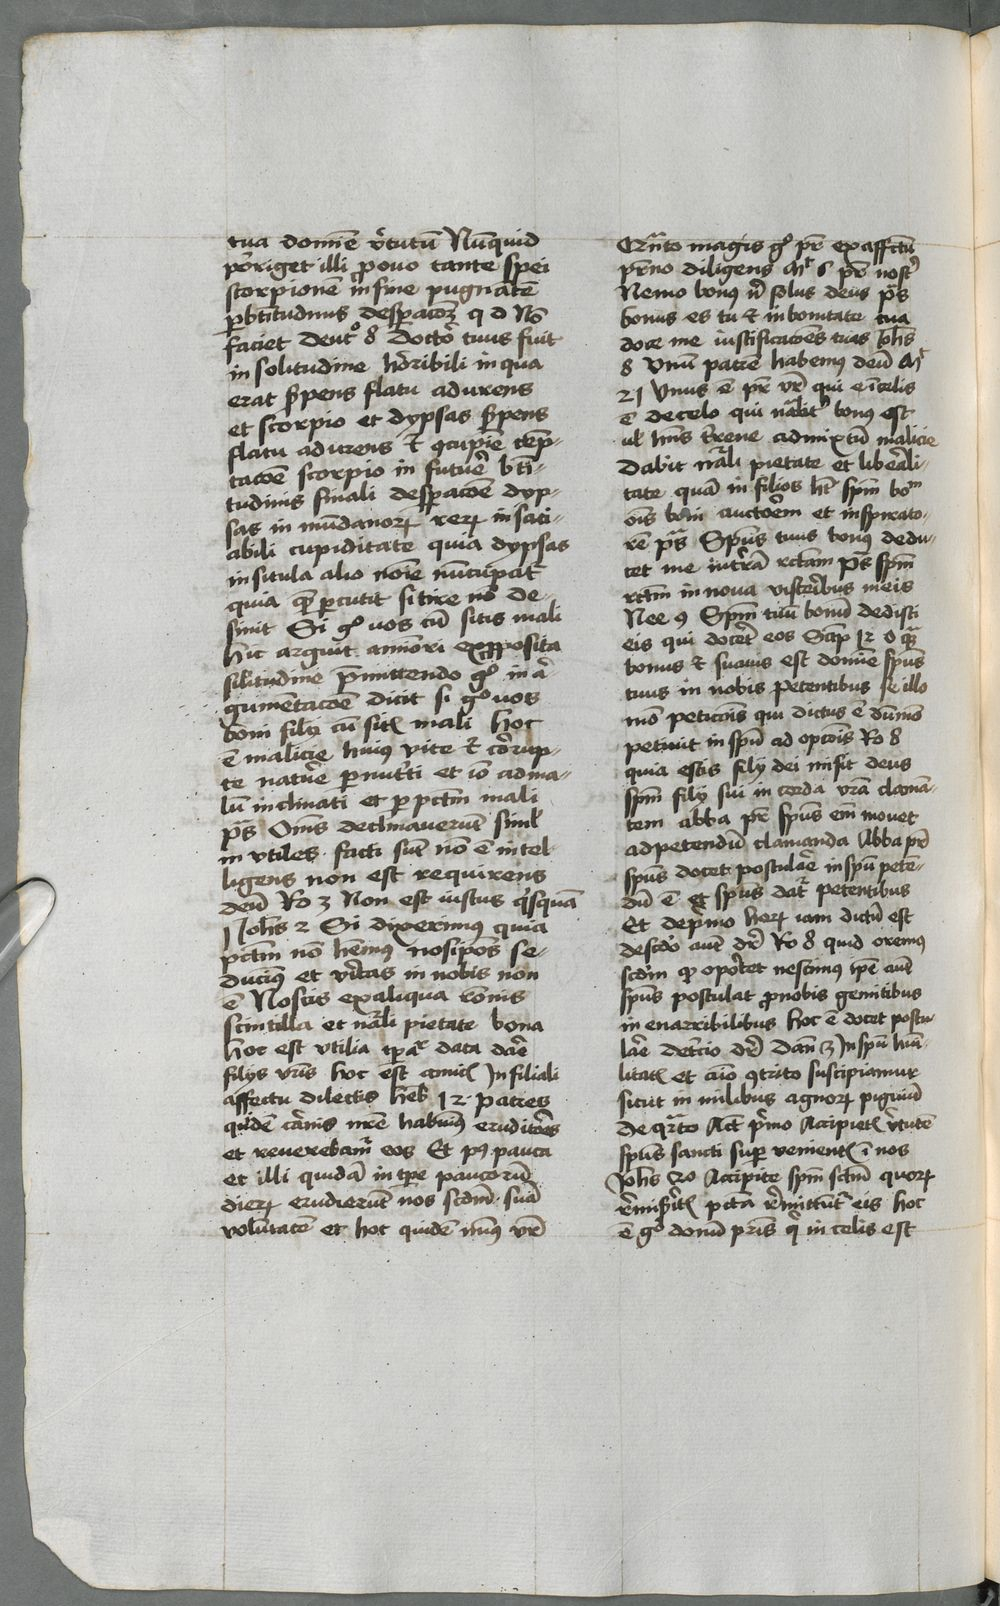 tua domīe v̓tutū Nūquid
porriget illi pro ouo tante spei
scorpionē in fine pugnātē
desperacōꝫ q d Nō
faciet Deutꝰ 8 Doctor tuus fuit
in solitudine horribili in qua
erat s̓pens flatu adurens
et scorpio et dypsas s̓pens
flatu adurens ē
tacōē scorpio in future bti⸗
tudinis finali despacōe dyp⸗
sas in mūdanorꝝ rerꝝ in saci⸗
abili cupiditate quia dypsas
in situla alio noīe nūcupat᷑
quia quē pcutit sitire nō de⸗
sinit Si gͦ uos cū sitis mali
hic arguit a miōri exposita
silitudine p̄mittendo gͦ in a̓⸗
gumētacōe dicit si gͦ uos
boni filij cū sitꝭ mali hoc
ē malicie huius vite ē corrup⸗
te nature et iō ad ma⸗
lū inclinati et p pctm̄ mali
pˢ Om̄s declinauerūt simˡ
in vtiles facti sūt nō ē intel⸗
ligens non est requirens
deū Ro 3 Non est iustus quisquā
1 Johis 2 Si dixerimus quia
pctm̄ nō hēmꝰ nosipos se⸗
ducimꝰ et vītas in nobis non
ē Nostis ex aliqua bonis
scintilla et nāli pietate bona
hoc est vtilia data dare
filijs vris hoc est In filiali
affectu dilectis heb 12 patres
quidē carnis nrē habuimꝰ eruditōes
et reuerebam᷑ eos Et pꝰ pauca
et illi quidā in tpe paucorū
dierꝝ erudierūt nos scdm̄ suā
volūtatē et hoc quidē vr̄
Qr̄to magis gͦ pr̄ ex affectu
diligens Mᵗ 6 pr̄ nostꝰ
Nemo bonꝰ n̄ solus deus pˢ
bonus es tu et in bonitate tua
doce me iustificacōes tuas Johs
8 Vnū patrē habemꝰ deū Mᵗ
21 Vnus ē pr̄ vr̄ qui ē ī celis
ē de celo qui bonus est
ul admixtū malicie
Dabit nāli pietate et liberali⸗
tate quā in filios ht̄ spm̄ boᵐ
ois boni auctorem et inspirato⸗
rē pˢ Spūs tuus bonꝰ dedu⸗
cet me in terrā rectam pˢ spm̄
rctm̄ in noua visceribus meis
Nee 9 Spm̄ tuū bonū dedisti
eis qui docet eos Sap 12 O qr̄
bonus ē suauis est domīe spūs
tuus in nobis Petentibus se illo
mō peticōis qui dictus ē
petiuit in spū Ro 8
quia estis filij dei misit deus
spm̄ filij sui in corda vrā clamā⸗
tem abba pr̄ spūs em̄ mouet
ad petendū clamanda Abba pr̄
spūs docet postulare in spū petē⸗
dū ē et spūs dat᷑ petentibus
Et de primo horꝝ iam dictū est
de scdo aut dr̄ Ro 8 quid oremꝰ
scdm̄ qd oportet nescimus ipe aut
spūs postulat pro nobis gemitibus
in enarribilibus hoc ē docet postu⸗
lare de tercio dr̄ Dan̄ 3 In spū hūi⸗
litatꝭ et aīo 9trito suscipiamur
sicut in milibus agnorꝝ pīguiū
De qrto Act primo Accipietꝭ v̓tutē
spūs sancti supuenientꝭ ī nos
Johis 20 Accipite spm̄ sctm̄ quorꝝ
remiseritꝭ pcta remittūt᷑ eis hoc
ē gͦ donū pris qi in celis est